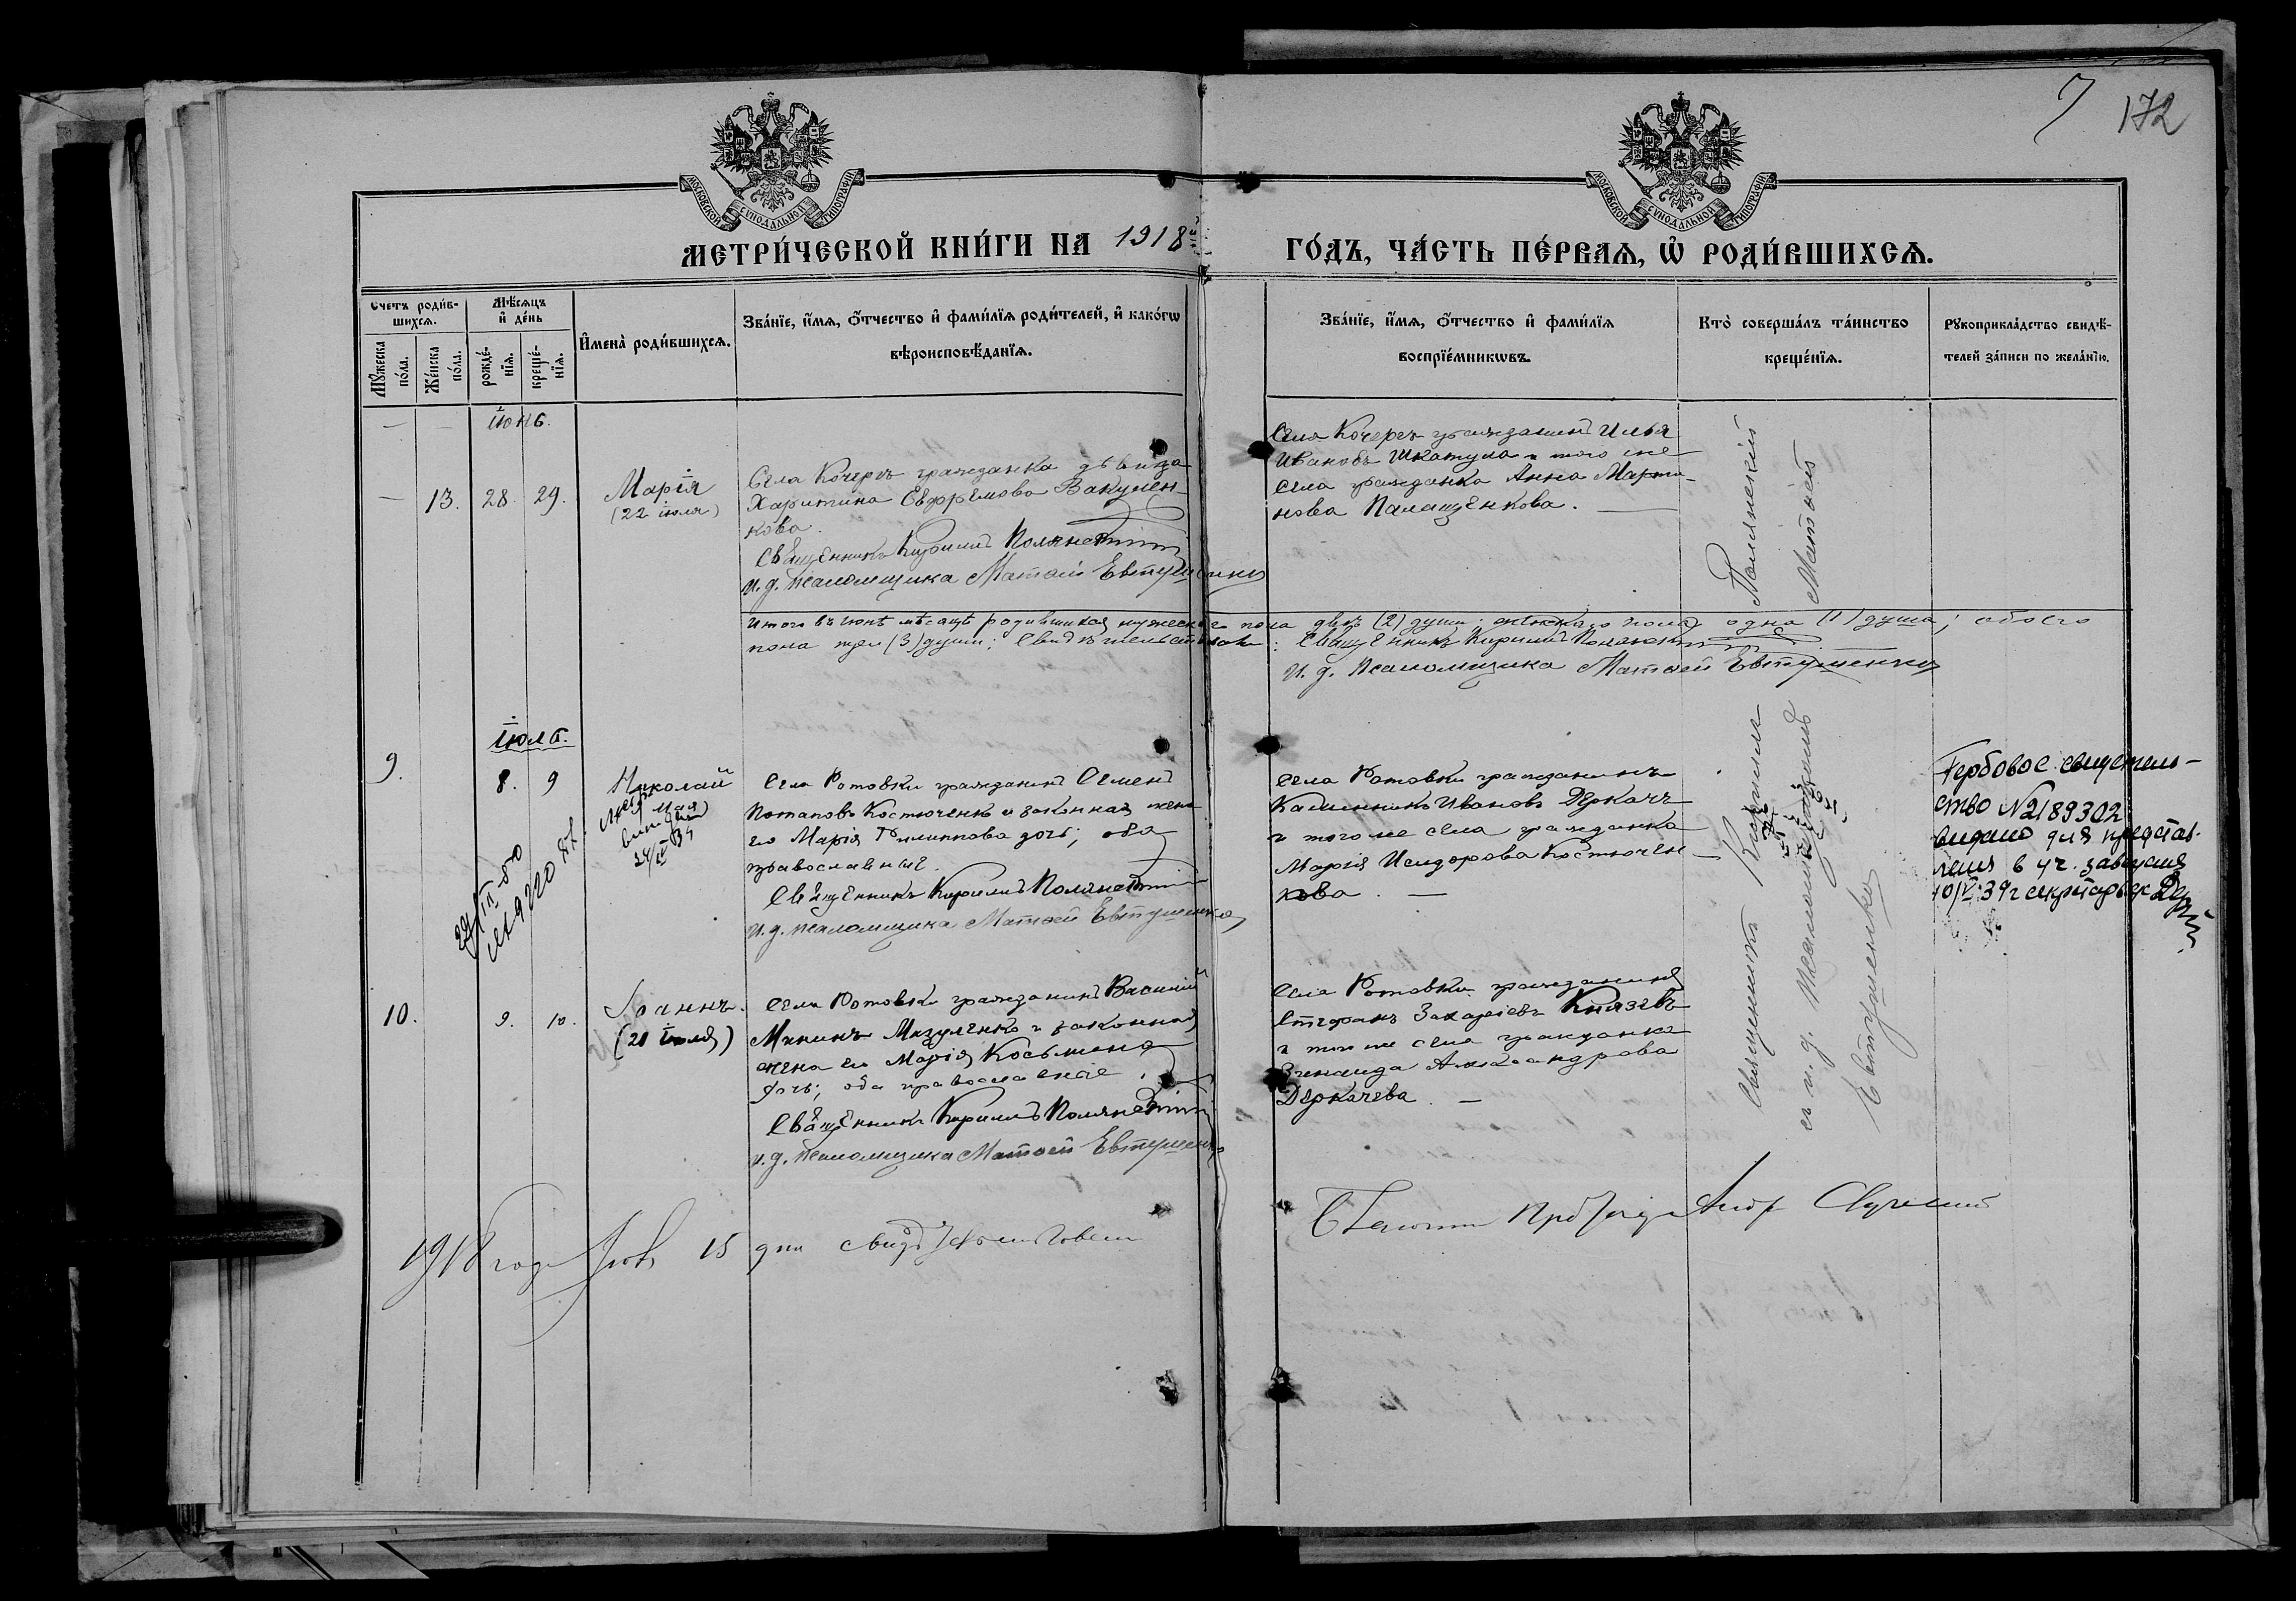 7 172
МОСКОВСКОЙ СѴНОДАЛЬНОЙ ТИПОГРАФІИ
МОСКОВСКОЙ СѴНОДАЛЬНОЙ ТИПОГРАФІИ
МЕТРИ́ЧЕСКОЙ КНИ́ГИ НА 1918й
ГО́ДЪ, ЧА́СТЬ ПЕ́РВАѦ, Ѡ҆ РОДИ́ВШИХСѦ.
Счетъ роди́в-
шихсѧ.
Мѣ́сѧцъ
и҆ де́нь
Мꙋ́жеска
по́ла.
Же́нска
по́ла.
рожде́-
нїѧ.
креще́-
нїѧ.
И҆мена̀ роди́вшихсѧ.
Зва́нїе, и҆́мѧ, ѻ҆́тчество и҆ фами́лїѧ роди́телей, и҆ како́гѡ
вѣроисповѣ́данїѧ.
Зва́нїе, и҆́мѧ, ѻ҆́тчество и҆ фами́лїѧ
воспрїе́мникѡвъ.
Кто̀ соверша́лъ та́инство
креще́нїѧ.
Рꙋкоприкла́дство свидѣ́-
телей за́писи по жела́нїю.
Іюнь.
— 13. 28. 29.
Марія
(22 іюля)
Села Кочергъ гражданка дѣвица
Харитина Евфремова Вакулен-
кова.
Священникъ Кириллъ Полянскій
И. д. псаломщика Матѳей Евтушенко
Села Кочергъ гражданинъ Илья
Ивановъ Шкатула и того же
села гражданка Анна Марти-
нова Палащенкова. —
Итого въ іюнѣ мѣсяцѣ родившихся мужескаго пола двѣ (2) души; женскаго пола одна (1) душа; обоего
пола три (3) души; Свидѣтельствовали: Священникъ Кириллъ Полянскій
И. д. Псаломщика Матѳей Евтушенко
Іюль.
9. 8. 9
Николай
Мая)
24/IV 34
22/IX-50
№ 9220
Села Ротовки гражданинъ Семенъ
Потаповъ Костюченко и законная жена
его Марія Филиппова дочь; оба
православные.
Священникъ Кириллъ Полянскій
И. д. псаломщика Матѳей Евтушенко
Села Ротовки гражданинъ
Каллиникъ Ивановъ Деркачъ
и того же села гражданка
Марія Исидорова Костючен-
кова. —
Гербовое свидетель-
ство № 2189302
видано для представ-
ления в уч.
10/IV-39г секретарь
10. 9. 10.
Іоаннъ.
(21 іюля)
Села Ротовки гражданинъ Василій
Мининъ Мазуленко и законная
жена его Марія Косьмина
дочь; оба православные.
Священникъ Кириллъ Полянскій
и. д. псаломщика Матѳей Евтушенко
Села Ротовки гражданинъ
Стефанъ Захаріевъ Князевъ
и того же села гражданка
Зинаида Александрова
Деркачева. —
Священникъ Кириллъ Полянскій
съ и. д. Псаломщикомъ Матѳей
Евтушенко
1918 года 15 дня